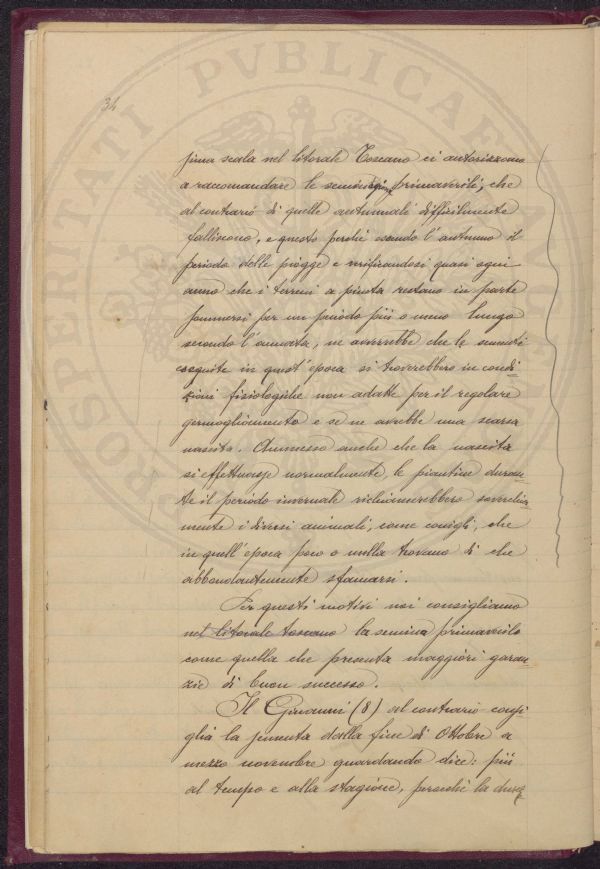 34
sima scala nel litorale Toscano ci autorizzano
a raccomandare le semine primaverili, che
al contrario di quelle autunnali difficilmente
falliscono, e questo perché essendo l'autunno il
periodo delle piogge e verificandosi quasi ogni
anno che i terreni a pineta restano in parte
sommersi per un periodo più o meno lungo
secondo l'annata, ne avverrebbe che le sementi
eseguite in quest'epoca si troverebbero in condi
zioni fisiologiche non adatte per il regolare
germogliamento e se ne avrebbe una scarsa
nascita. Ammesso anche che la nascita
si effettuasse normalmente, le piantine duran
te il periodo invernale richiamerebbero soverchia
mente i diversi animali, come conigli, che
in quell'epoca poco o nulla trovano di che
abbondantemente sfamarsi.
Per questi motivi noi consigliamo
nel litorale toscano la semina primaverile
come quella che presenta maggiori garan
zie di buon successo.
Il Ginanni (8) al contrario consi
glia la sementa dalla fine di Ottobre a
mezzo novembre guardando dice: più
al tempo e alla stagione, perché la
PROSPERITATI PVBLICAE AVGENDAE